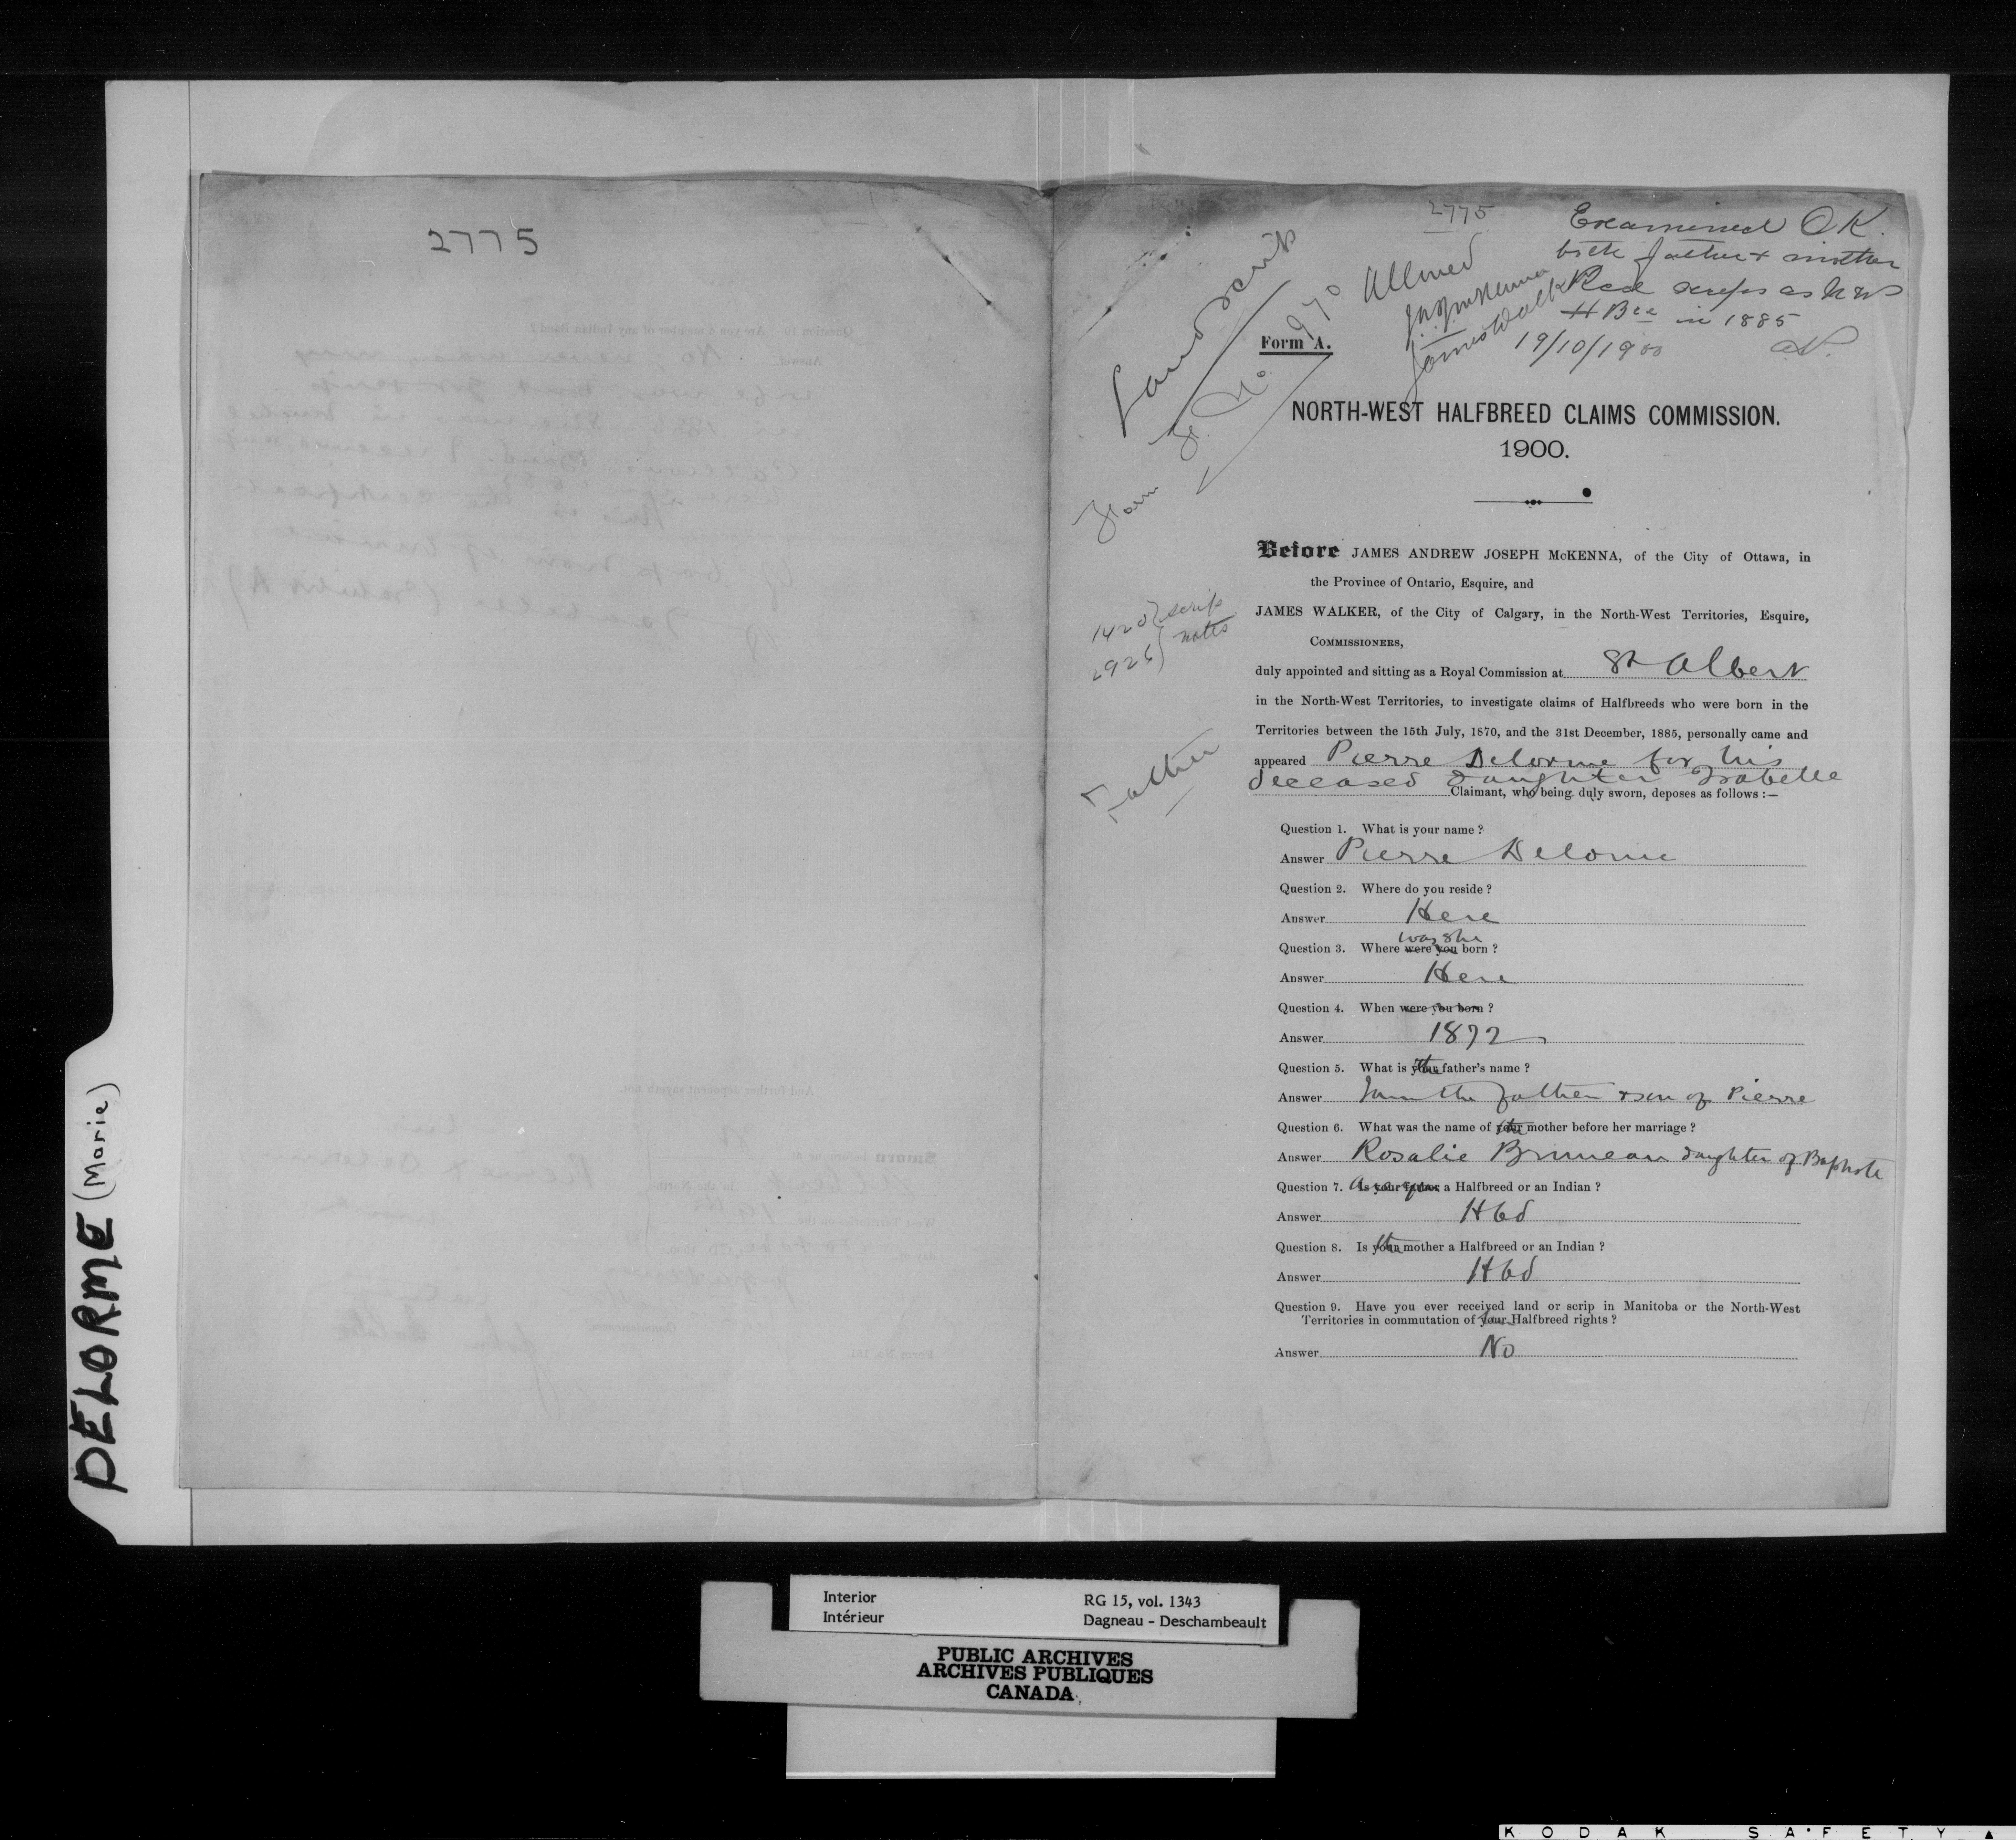 2775
2775
Examined OK.
both father & mother
Recd scrips as N W
H Bds in 1885
19/10/1900
Allowed
JAJ McKenna
James Walker
Land scrip
Form A.
Form H. No. 970
NORTH-WEST HALFBREED CLAIMS COMMISSION.
1900.
Before JAMES ANDREW JOSEPH McKENNA, of the City of Ottawa, in
the Province of Ontario, Esquire, and
JAMES WALKER, of the City of Calgary, in the North-West Territories, Esquire,
COMMISSIONERS,
1420 } scrip
2926 } notes
duly appointed and sitting as a Royal Commission at St Albert
in the North-West Territories, to investigate claims of Halfbreeds who were born in the
Territories between the 15th July, 1870, and the 31st December, 1885, personally came and
appeared Pierre Delorme for his
deceased daughter Isabelle
Claimant, who being duly sworn, deposes as follows :—
Father
Question 1. What is your name ?
Answer Pierre Delorme
Question 2. Where do you reside ?
Answer Here
was she
Question 3. Where were you born ?
Answer Here
Question 4. When were you born ?
Answer 1872
Question 5. What is the father's name ?
Answer I am the father & son of Pierre
Question 6. What was the name of the mother before her marriage ?
Answer Rosalie Bruneau daughter of Baptiste
Question 7. Are you a Halfbreed or an Indian ?
Answer Hbd
Question 8. Is the mother a Halfbreed or an Indian ?
Answer Hbd
Question 9. Have you ever received land or scrip in Manitoba or the North-West
Territories in commutation of her Halfbreed rights ?
Answer No
DELORME (Marie)
Interior
Intérieur
RG 15, vol. 1343
Dagneau - Deschambeault
PUBLIC ARCHIVES
ARCHIVES PUBLIQUES
CANADA
KODAK SAFETY